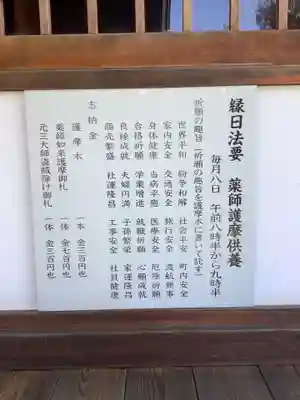 縁日法要 薬師護摩供養
毎月八日 午前八時半から九時半
祈願の趣旨(祈願の趣旨を護摩木に書いて託す)
世界平和 紛争和解 社会平安 町内安全
家内安全 交通安全 旅行安全 渡航無事
身体健康 当病平癒 医療安全 厄除祈願
合格祈願 学業増進 就職祈願 心願成就
良縁成就 夫婦円満 子孫繁栄 家運隆昌
商売繁盛 社運隆昌 工事安全 社員健康
志納金
護摩木 一本 金三百円也
薬師如来護摩御札 一体 金七百円也
元三大師盗賊除け御札 一体 金三百円也